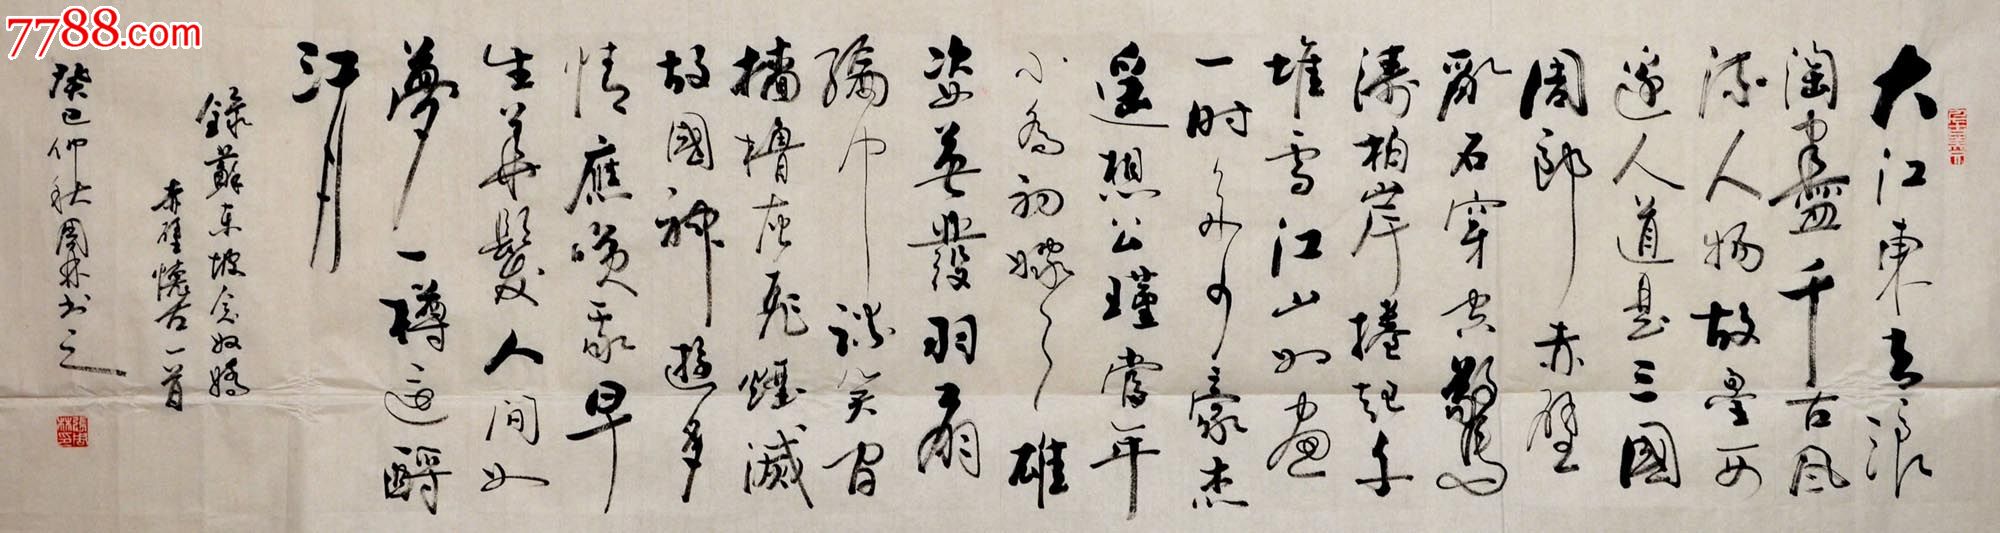 大江東去浪
淘盡千古風
流人物故壘西
邊人道是三國
周郎赤壁
亂石穿空驚
濤拍岸捲起千
堆雪江山如畫
一時多少豪杰
遥想公瑾當年
小喬初嫁了雄
姿英發羽扇
綸巾談笑間
檣櫓灰飛煙滅
故國神遊多
情應笑我早
生華髮人間如
夢一樽還酹
江月
錄蘇東坡念奴嬌
赤壁懷古一首
癸巳仲秋周林书之
7788.com